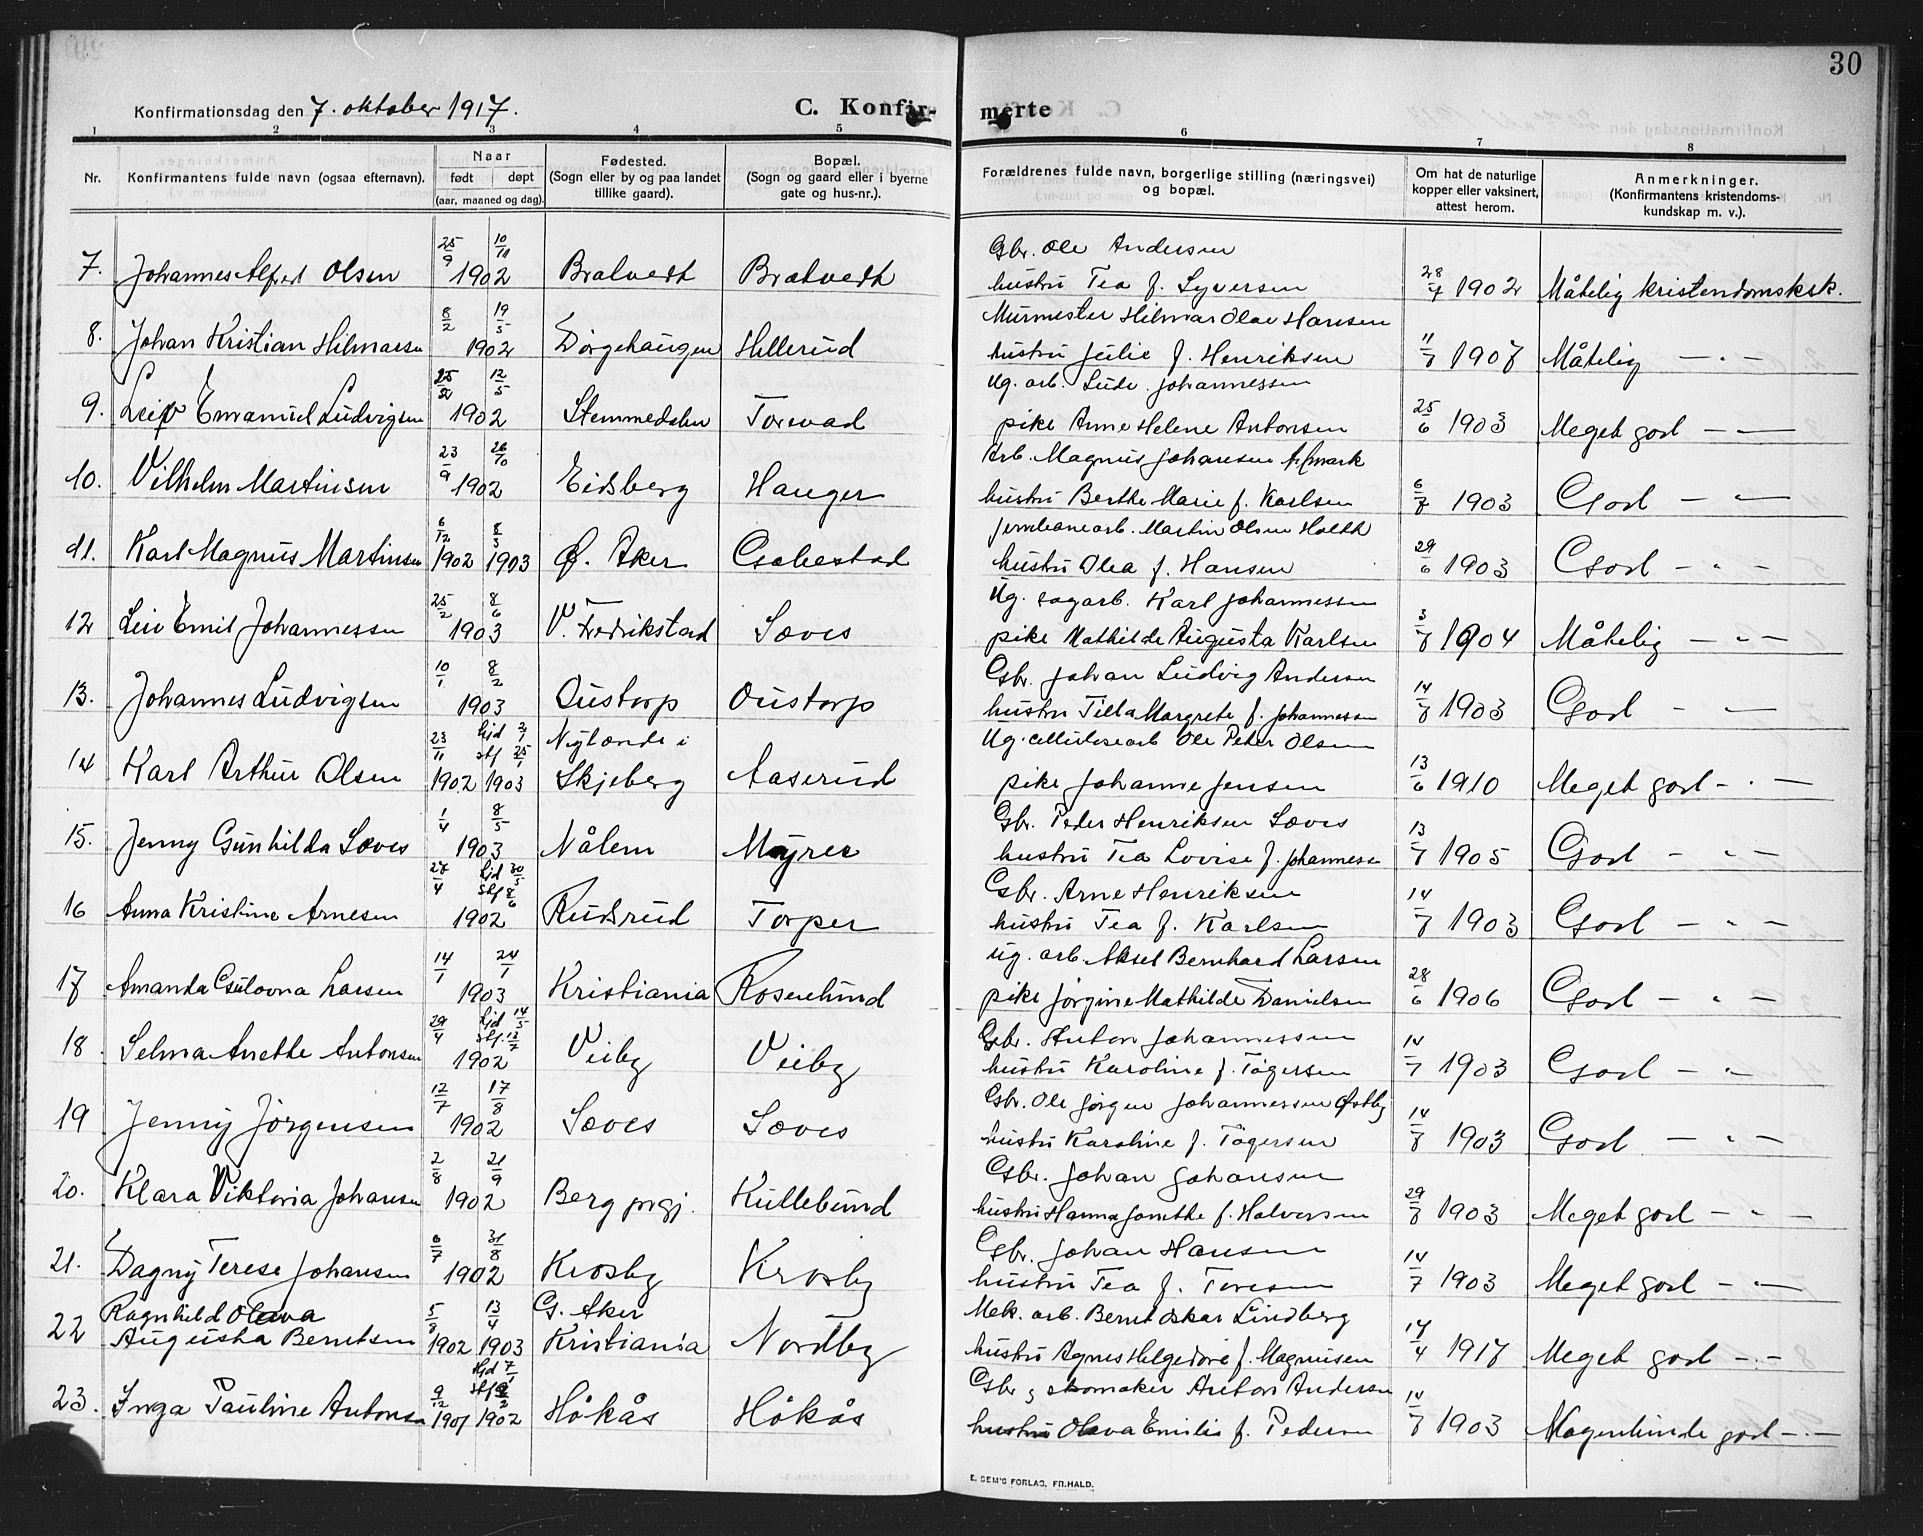 30
Konfirmationsdag den 7. oktober 1917.
C. Konfir-
merte
1 2 3 4 5 6 7 8
Nr.
Konfirmantens fulde navn (ogsaa efternavn).
Naar
født døpt
(aar, maaned og dag).
Fødested.
(Sogn eller by og paa landet
tillike gaard).
Bopæl.
(Sogn og gaard eller i byerne
gate og hus-nr.).
Forældrenes fulde navn, borgerlige stilling (næringsvei)
og bopæl.
Om hat de naturlige
kopper eller vaksinert,
attest herom.
Anmerkninger.
(Konfirmantens kristendoms-
kundskap m. v.).
25/9 10/10 Gbr. Ole Andersen
7. Johannes Alfred Olsen 1902 Bratvedt Bratvedt hustru Tea f. Syversen 28/7 1902 Måtelig kristendomsksk.
8/2 19/5 Murmester Hilmar Olav Hansen
8. Johan Kristian Hilmarsen 1902 Dørgehaugen Hellerud hustru Julie f. Henriksen 11/7 1907 Måtelig — " —
25/2 12/5 Ug. arb. Ludv. Johannessen
9. Leif Emanuel Ludvigsen 1902 Stemmedalen Torsvad pike Anne Helene Antonsen 25/6 1903 Meget god — " —
23/9 26/10 Arb. Magnus Johansen
10. Vilhelm Martinsen 1902 Eidsberg Hauger hustru Berthe Marie f. Karlsen 6/7 1903 God — " —
6/12 8/3 Jernbanearb. Martin Olsen Holth
11. Karl Magnus Martinsen 1902 1903 Ø. Aker Gabestad hustru Olea f. Hansen 29/6 1903 God — " —
25/2 8/6 Ug. sagarb. Karl Johannessen
12 Leiv Emil Johannessen 1903 V. Fredrikstad Sæves pike Mathilde Augusta Karlsen 3/7 1904 Måtelig — " —
10/1 8/2 Gbr. Johan Ludvig Andersen
13. Johannes Ludvigsen 1903 Oustorp Oustorp hustru Tilla Margrete f. Johannessen 14/7 1903 God — " —
23/11 hjd 2/1 stf 25/1 Nylænde i Ug. cellulosearb Ole Peter Olsen
14 Karl Arthur Olsen 1902 1903 Skjeberg Aaserud pike Johanne Jensen 13/6 1910 Meget god — " —
1/4 8/5 Gbr. Peder Henriksen Sæves
15. Jenny Gunhilda Sæves 1903 Nålem Myrer hustru Tea Lovise f. Johannessen 13/7 1905 God — " —
27/4 hjd 30/5 stf 8/6 Gbr. Arne Henriksen
16 Anna Kristine Arnesen 1902 Rudsrud Torper hustru Tea f. Karlsen 14/7 1903 God — " —
14/1 24/1 Ug. arb. Aksel Bernhard Larsen
17 Amanda Gulovna Larsen 1903 Kristiania Rosenlund pike Jørgine Mathilde Danielsen 28/6 1906 God — " —
29/4 hjd 14/5 stf. 13/7 Gbr. Anton Johannessen
18 Selma Anette Antonsen 1902 Veiby Veiby hustru Karoline f. Tøgersen 14/7 1903 God — " —
12/7 17/8 Gbr. Ole Jørgen Johannessen Østby
19 Jenny Jørgensen 1902 Sæves Sæves hustru Karoline f. Tøgersen 14/7 1903 God — " —
2/8 21/9 Gbr. Johan Johansen
20. Klara Viktoria Johansen 1902 Berg prgj. Kullebund hustru Hanna Janette f. Halvorsen 29/8 1903 Meget god — " —
6/7 31/8 Gbr. Johan Hansen
21. Dagny Terese Johansen 1902 Krosby Krosby hustru Tea f. Toresen 14/7 1903 Meget god — " —
Ragnhild Olava 5/8 13/4 G. Aker Mek. arb. Bernt Oskar Lindberg
22 Augusta Berntsen 1902 1903 Kristiania Nordby hustru Agnes Helgedore f. Magnusen 17/4 1917 Meget god — " —
9/12 hjd 7/1 stf 9/2 Gbr. g skomaker Anton Andersen
23. Inga Pauline Antonsen 1901 1902 Håkås Håkås hustru Olava Emilie f. Pedersen 14/7 1903 Nogenlunde god — " —
E. SEM'S FORLAG, FR.HALD.